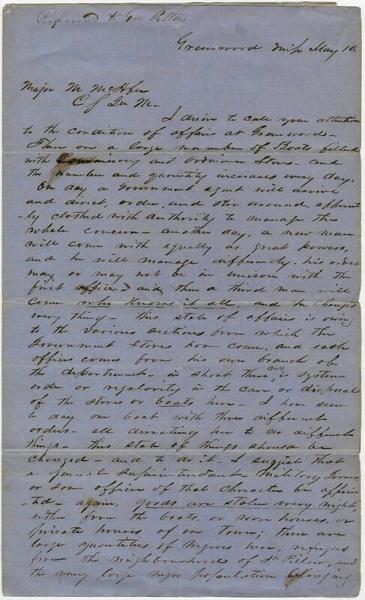 Referred to Gov Pettus
Greenwood Miss May 10
Major M McAfee
C of Qr M-
I desire to call your attention
to the condition of affairs at Greenwood-
There are a large number of Boats filled
with Commissary and ordnance Stores- and
the number and quantity increases every day.
One day a Government agent will arrive
and direct, order, and stir around, apparent
-ly clothed with authority to manage this
whole concern- another day, a new man
will come with equally as great powers,
and he will manage differently, his orders
may or may not be in unison with the
first officer, and then a third man will
come who knows it all and he changes
every thing- this state of affairs is owing
to the various sections from which the
Government Stores have come, and each
officer comes from his own branch of
the department- in short there is no system
order or regularity in the care or disposal
of the stores or boats here. I have seen
a day one boat with three different
orders- all directing her to do different
things- This state of things should be
changed- and to do it, I suggest that
a general Superintendant- Military Governor
or some officer of that character be appoin
-ted- again, goods are stolen every night,
either from the boats, or ware houses, or
private houses of our town; there are
large quantities of Negroes here, refugees
from the neighbourhoods of Ft Pillow, and
the very large negro population belonging